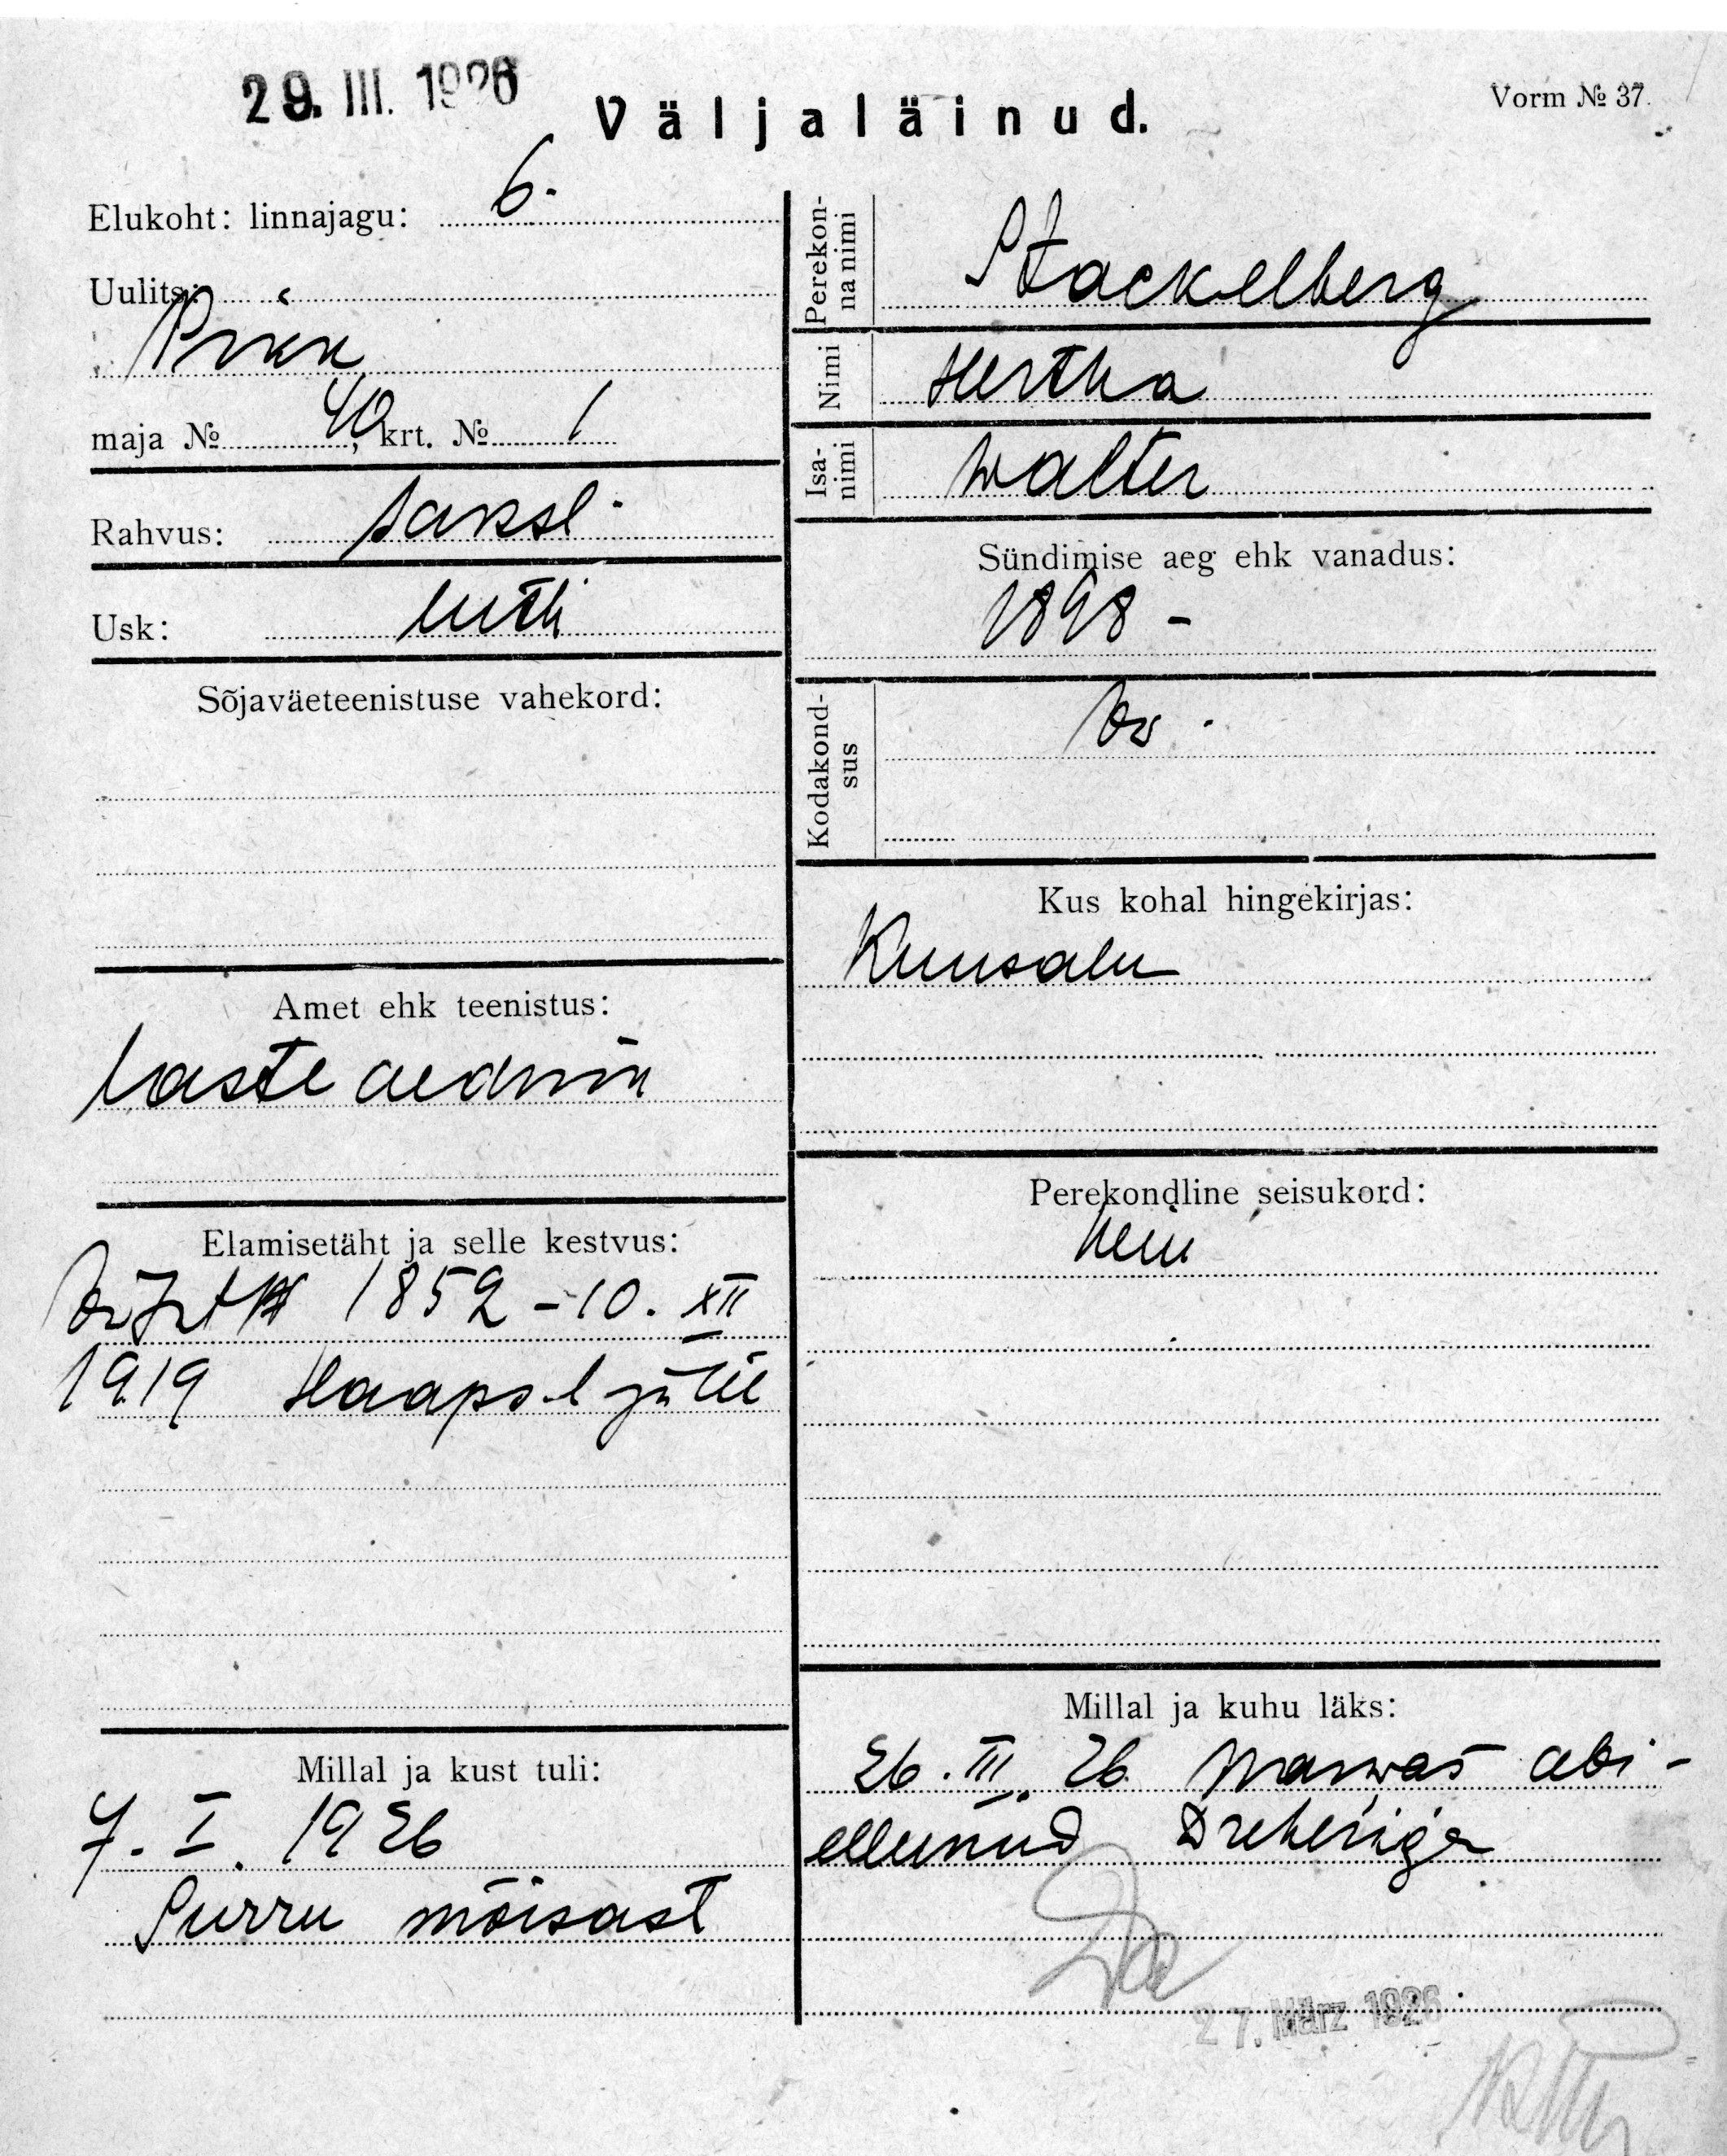 29. III. 1926
Väljaläinud.
Vorm № 37.
Elukoht: linnajagu: 6.
Uulits:
Pikk
maja № 40, krt. № 1
Rahvus: saksl.
Usk: luth
Sõjaväeteenistuse vahekord:
Amet ehk teenistus:
laste aednik
Elamisetäht ja selle kestvus:
1852 - 10. XII
1919 Haaps.
Millal ja kust tuli:
7. I. 1926
Purru mõisast
Perekonna nimi
Stackelberg
Nimi
Hertha
Isa-nimi
Walter
Sündimise aeg ehk vanadus:
1898 -
Kodakond-
sus
Kus kohal hingekirjas:
Kuusalu
Perekondline seisukord:
neiu
Millal ja kuhu läks:
26. III. 26 abi-
ellunud Dreheriga
27. März 1926